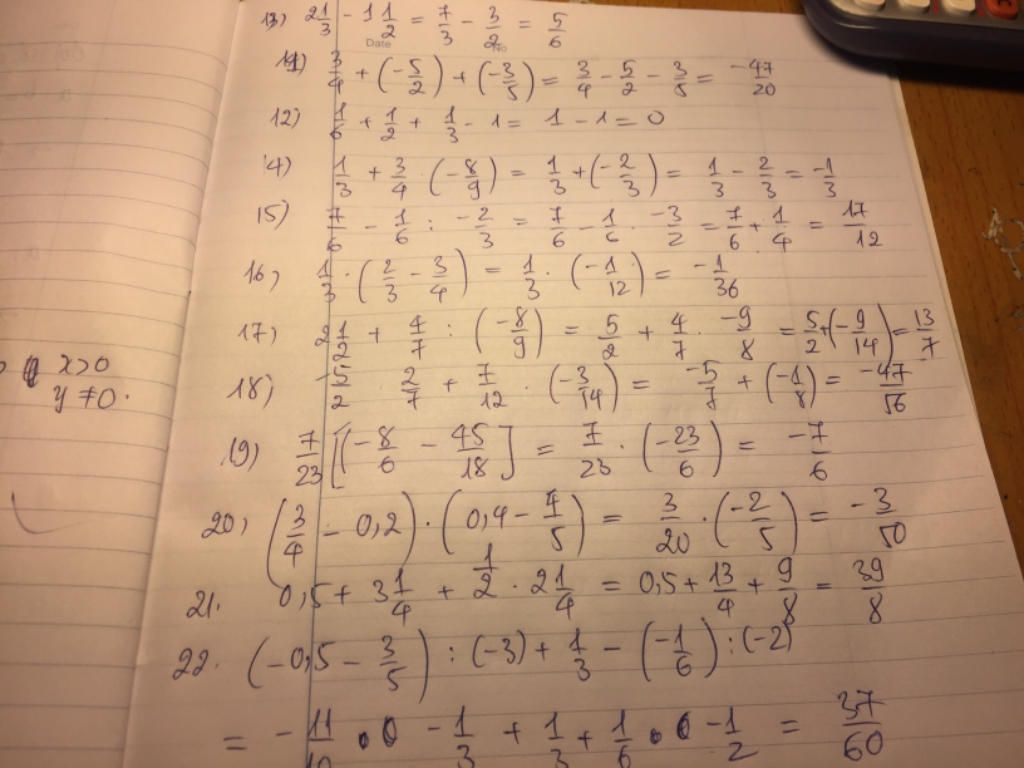 13) 2 1/3 - 1 1/2 = 7/3 - 3/2 = 5/6
Date No
11) 3/4 + (-5/2) + (-3/5) = 3/4 - 5/2 - 3/5 = -47/20
12) 1/6 + 1/2 + 1/3 - 1 = 1 - 1 = 0
4) 1/3 + 3/4 · (-8/9) = 1/3 + (-2/3) = 1/3 - 2/3 = -1/3
15) 7/6 - 1/6 : -2/3 = 7/6 - 1/6 · -3/2 = 7/6 + 1/4 = 17/12
16) 1/3 · (2/3 - 3/4) = 1/3 · (-1/12) = -1/36
17) 2 1/2 + 4/7 : (-8/9) = 5/2 + 4/7 · -9/8 = 5/2 + (-9/14) = 13/7
x>0
18) -5/2 · 2/7 + 7/12 · (-3/14) = -5/7 + (-1/8) = -47/56
y ≠0.
19) 7/23 [(-8/6 - 45/18] = 7/23 · (-23/6) = -7/6
20) (3/4 - 0,2) · (0,4 - 4/5) = 3/20 · (-2/5) = -3/50
21. 0,5 + 3 1/4 + 1/2 · 2 1/4 = 0,5 + 13/4 + 9/8 = 39/8
22. (-0,5 - 3/5) : (-3) + 1/3 - (-1/6) : (-2)
= -11/10 · -1/3 + 1/3 + 1/6 · -1/2 = 37/60